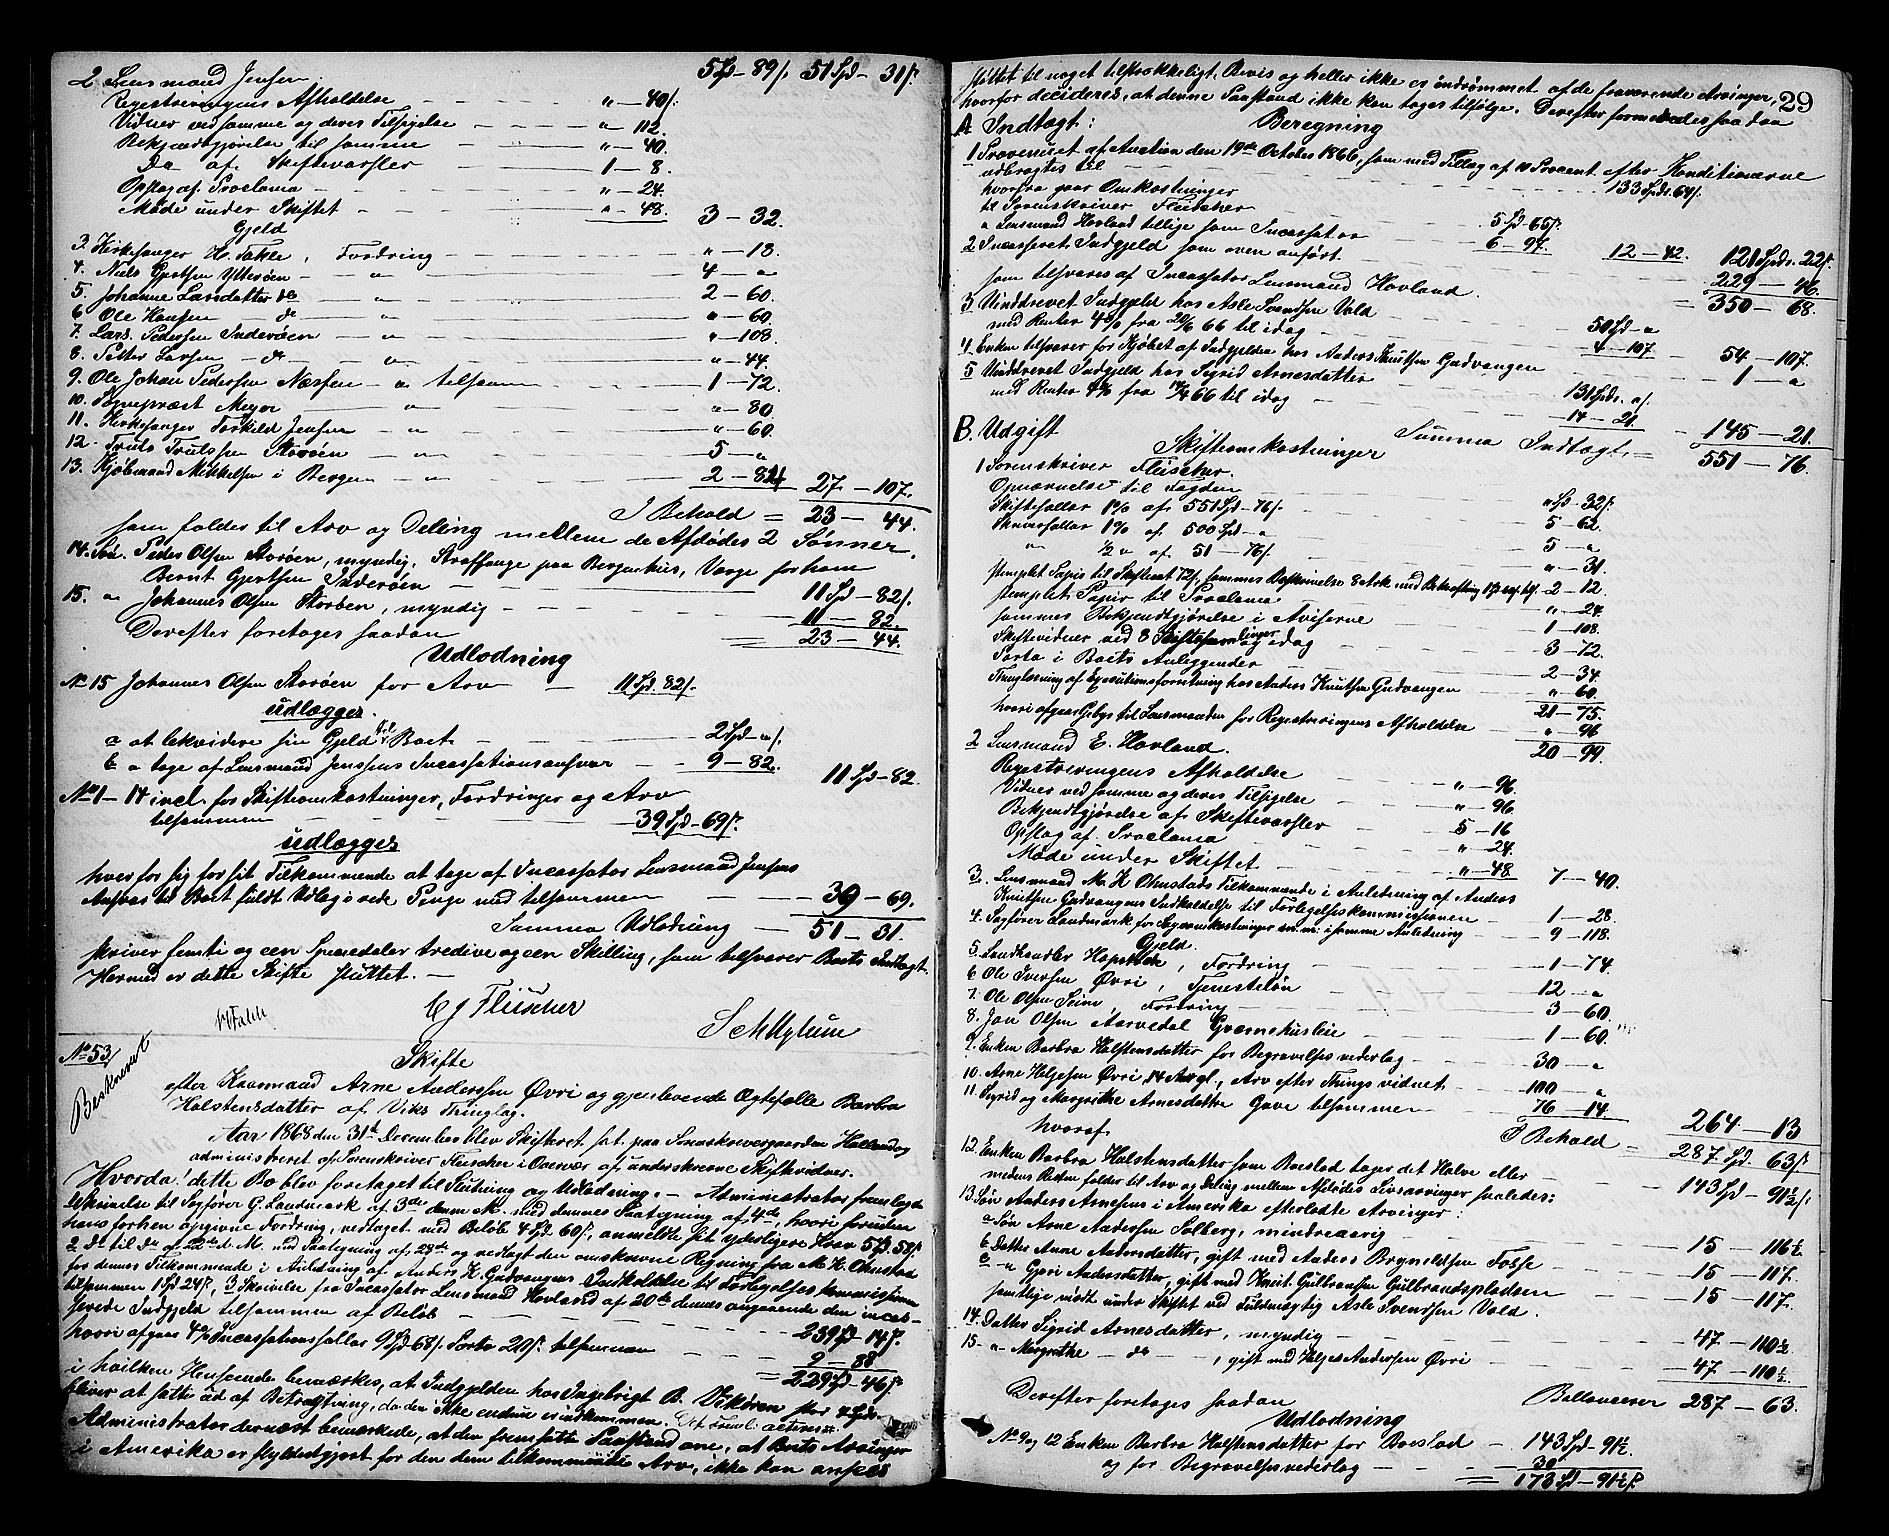 2 Lensmand Jensen 5 Spd - 89 ß. 51 Spd - 31 ß.
Registreringens Afholdelse " - 40 ß.
Vidner ved samme og deres Tilsigelse " - 112.
Bekjendtgjørelse til samme " - 40.
Do af Skiftevarsler 1 - 8.
Opslag af Proclama " - 24.
Møde under Skiftet " - 48. 3 - 32.
Gjeld
3. Kirkesanger H. Takle, Fordring " - 18.
4. Niels Gjertsen Ytterøen " 4 - "
5. Johanne Larsdatter do " 2 - 60.
6 Ole Hansen do " " - 60.
7. Lars Pedersen Inderøen " " - 108.
8. Petter Larsen do " " - 44.
9. Ole Johan Pedersen Næssen " tilsammen 1 - 72.
10. Sognepræst Meyer " " - 80.
11. Kirkesanger Torkild Jensen " " - 60.
12. Truls Trulssen Storøen " 5 - "
13. Kjøbmand Mikkelsen i Bergen " 2 - 84 27 - 107.
I Behold = 23 - 44.
som falder til Arv og Deling mellem de Afdødes 2 Sønner.
14. Søn Peder Olsen Storøen, myndig, Straffange paa Bergenhus, Værge for ham
Bernt Gjertsen Inderøen 11 Spd - 82 ß.
15. " Johannes Olsen Storøen, myndig 11 - 82.
Derefter foretages saadan 23 - 44.
Udlodning
No 15 Johannes Olsen Storøen for Arv 11 Spd. 82 ß.
udlægges.
a at likvidere sin Gjeld til Boet 2 Spd - " ß.
b " tage af Lensmand Jensens Incassationsansvar 9 - 82. 11 Spd - 82
No 1 - 14 incl. for Skifteomkostninger, Fordringer og Arv
tilsammen 39 Spd - 69 ß.
udlægges
hver for sig for sit Tilkommende at tage af Incassator Lensmand Jensens
Ansvar til Boet fuldt Udlæg i rede Penge med tilsammen 39 - 69.
Summa Udlodning 51 - 31.
skriver femti og een Speciedaler tredive og een Skilling, som tilsvarer Boets Indtægt.
Hermed er dette Skifte sluttet. -
C J Fleischer
No 53/
Beskrevet
Skifte
efter Kaarmand Arne Anderssen Øvri og gjenlevende Ægtefælle Barbra
Halstensdatter af Viks Thinglag.
Aar 1868 den 31te December blev Skifteret sat paa Sorenskrivergaarden Hallandog
administreret af Sorenskriver Fleischer i Overvær af underskrevne Skiftevidner.
Hvorda! dette Bo blev foretaget til Slutning og Udlodning. - Administrator fremlagde
1 Skrivelse til Sagfører G. Landmark af 3die denne M. med dennes Paategning af 4de, hvori foruden
hans forhen opgivne Fordring, vedtaget med Beløb 4 Spd 60 ß, anmeldte sit yderligere Krav 5 Spd 58 ß.
2 Do til Do af 22de d. M. med Paategning af 28de og vedlagt den omskrevne Regning fra M. H. Ohnstad
for dennes Tilkommende i Anledning af Anders K. Gudvangens Indkaldelse til Forligelseskommissionen
tilsammen 1 Spd 24 ß, 3 Skrivelse fra Incassator Lensmand Hovland af 20de dennes angaaende den incas-
serede Indgjeld tilsammen af Beløb 239 Spd - 14 ß.
hvori afgaar 4 % Incassationssallar 9 Spd 68 ß. Porto 20 ß. tilsammen 9 - 88
229 Spd - 46 ß.
i hvilken Henseende bemærkes, at Indgjelden hos Ingebrigt B. Vikøren stor 4 Spd.
bliver at sætte ud af Betragtning, da den ikke endnu er indkommen.
Administrator dernæst bemærkede, at den fremsatte Paastand om, at Boets Arvinger
i Amerika er fyldestgjort for den dem tilkommende Arv, ikke kan ansees
støttet til noget tilstrækkeligt Bevis og heller ikke er indrømmet af de fraværende Arvinger, 29
hvorfor decideres, at denne Paastand ikke kan tages tilfølge. Derefter formeredes saadan
Beregning
A Indtægt:
1 Provenuet af Auction den 19de October 1866, som med Tillæg af 10 Procent efter Konditionerne
udbragtes til 133 Spd. 64 ß.
hvorfra gaar Omkostninger
til Sorenskriver Fleischer 5 Spd 65 ß.
" Lensmand Hovland tillige som Incassator 6 - 97. 12 - 42. 121 Spd. 22 ß.
2 Incasseret Indgjeld som oven anført 229 - 46.
som tilsvares af Incassator Lensmand Hovland. 350 - 68.
3 Uinddrevet Indgjeld hos Asle Svendsen Vold 50 Spd - "
med Renter 4 % fra 20/6 66 til idag 4 - 107. 54 - 107.
4. Enken tilsvarer for Kjøbet af Indgjelden hos Anders Knutsen Gudvangen 1 - "
5 Uinddrevet Indgjeld hos Sigrid Arnesdatter 131 Spd. " ß.
med Renter 4 % fra 14/4 66 til idag 14 - 21. 145 - 21.
Summa Indtægt 551 - 76.
B. Udgift
Skifteomkostninger
1 Sorenskriver Fleischer.
Opnævnelse til Fogden " Spd - 32 ß.
Skiftesallar 1 % af 551 Spd - 76 ß. 5 - 62.
Skriversallar 1 % af 500 Spd - " 5 - "
" 1/2 " af 51 - 76 ß. " - 31.
stemplet Papir til Skifteact 72 ß, sammes Beskrivelse 8 Ark med Bekræftning 2 - 12.
stemplet Papir til Proclama " - 24.
sammes Bekjendtgjørelse i Aviserne 1 - 108.
Skiftevidner ved 8 Skiftesamlinger og idag 3 - 72.
Porto i Boets Anliggender 2 - 34.
Thinglæsning af Executionsforretning hos Anders Knutsen Gudvangen " - 60.
21 - 75.
hvori afgaar Gebyr til Lensmanden for Registreringens Afholdelse " - 96
20 - 99.
2 Lensmand E. Hovland.
Registreringens Afholdelse " - 96.
Vidner ved samme og deres Tilsigelse " - 96
Bekjendtgjørelse af Skiftevarsler 5 - 16
Opslag af Proclama " - 24.
Møde under Skiftet " - 48 7 - 40.
3. Lensmand M. H Ohnstads Tilkommende i Anledning af Anders
Knutsen Gudvangens Indkaldelse til Forligelseskommissionen 1 - 28.
4. Sagfører Landmark for Sagsomkostninger m. m. i samme Anledning 9 - 118.
Gjeld.
5. Landhandler Hopstock, Fordring 1 - 74.
6 Ole Iversen Øvri, Tjenesteløn 12 - "
7. Ole Olsen Seim, Fordring 3 - 60.
8. Jon Olsen Aarvedal Grevnehusleie 1 - 60.
9. Enken Barbra Halstensdatter for Begravelsesvederlag 30 - "
10. Arne Heljesen Øvri, 14 Aar gl., Arv efter Things vidnet 100 - "
11. Sigrid og Margrethe Arnesdøttre Gave tilsammen 76 - 14. 264 - 13
I Behold 287 Spd. 63 ß.
hvoraf
12. Enken Barbra Halstensdatter som Boeslod tager det Halve eller 143 Spd - 91 1/2 ß.
medens Resten falder til Arv og Deling mellem Afdødes Livsarvinger saaledes:
13. Søn Anders Arnesens i Amerika efterladte Arvinger:
a Søn Arne Andersen Solberg, mindreaarig 15 - 116 1/2.
b Datter Anne Andersdatter, gift med Anders Brynildsen Fosse 15 - 117.
c " Gjøri Andersdatter, gift med Knut Gulbransen Gulbrandspladsen 15 - 117.
samtlige mødt under Skiftet ved Fuldmægtig Asle Svendsen Vold.
14. Datter Sigrid Arnesdatter, myndig 47 - 110 1/2
15. " Margrethe - do -, gift med Heljes Andersen Øvri 47 - 110 1/2.
Balancerer 287 - 63.
Derefter foretages saadan
Udlodning
No 9 og 12 Enken Barbra Halstensdatter for Boeslod 143 Spd - 91 1/2.
og for Begravelsesvederlag 30 "
173 Spd - 91 1/2 ß.